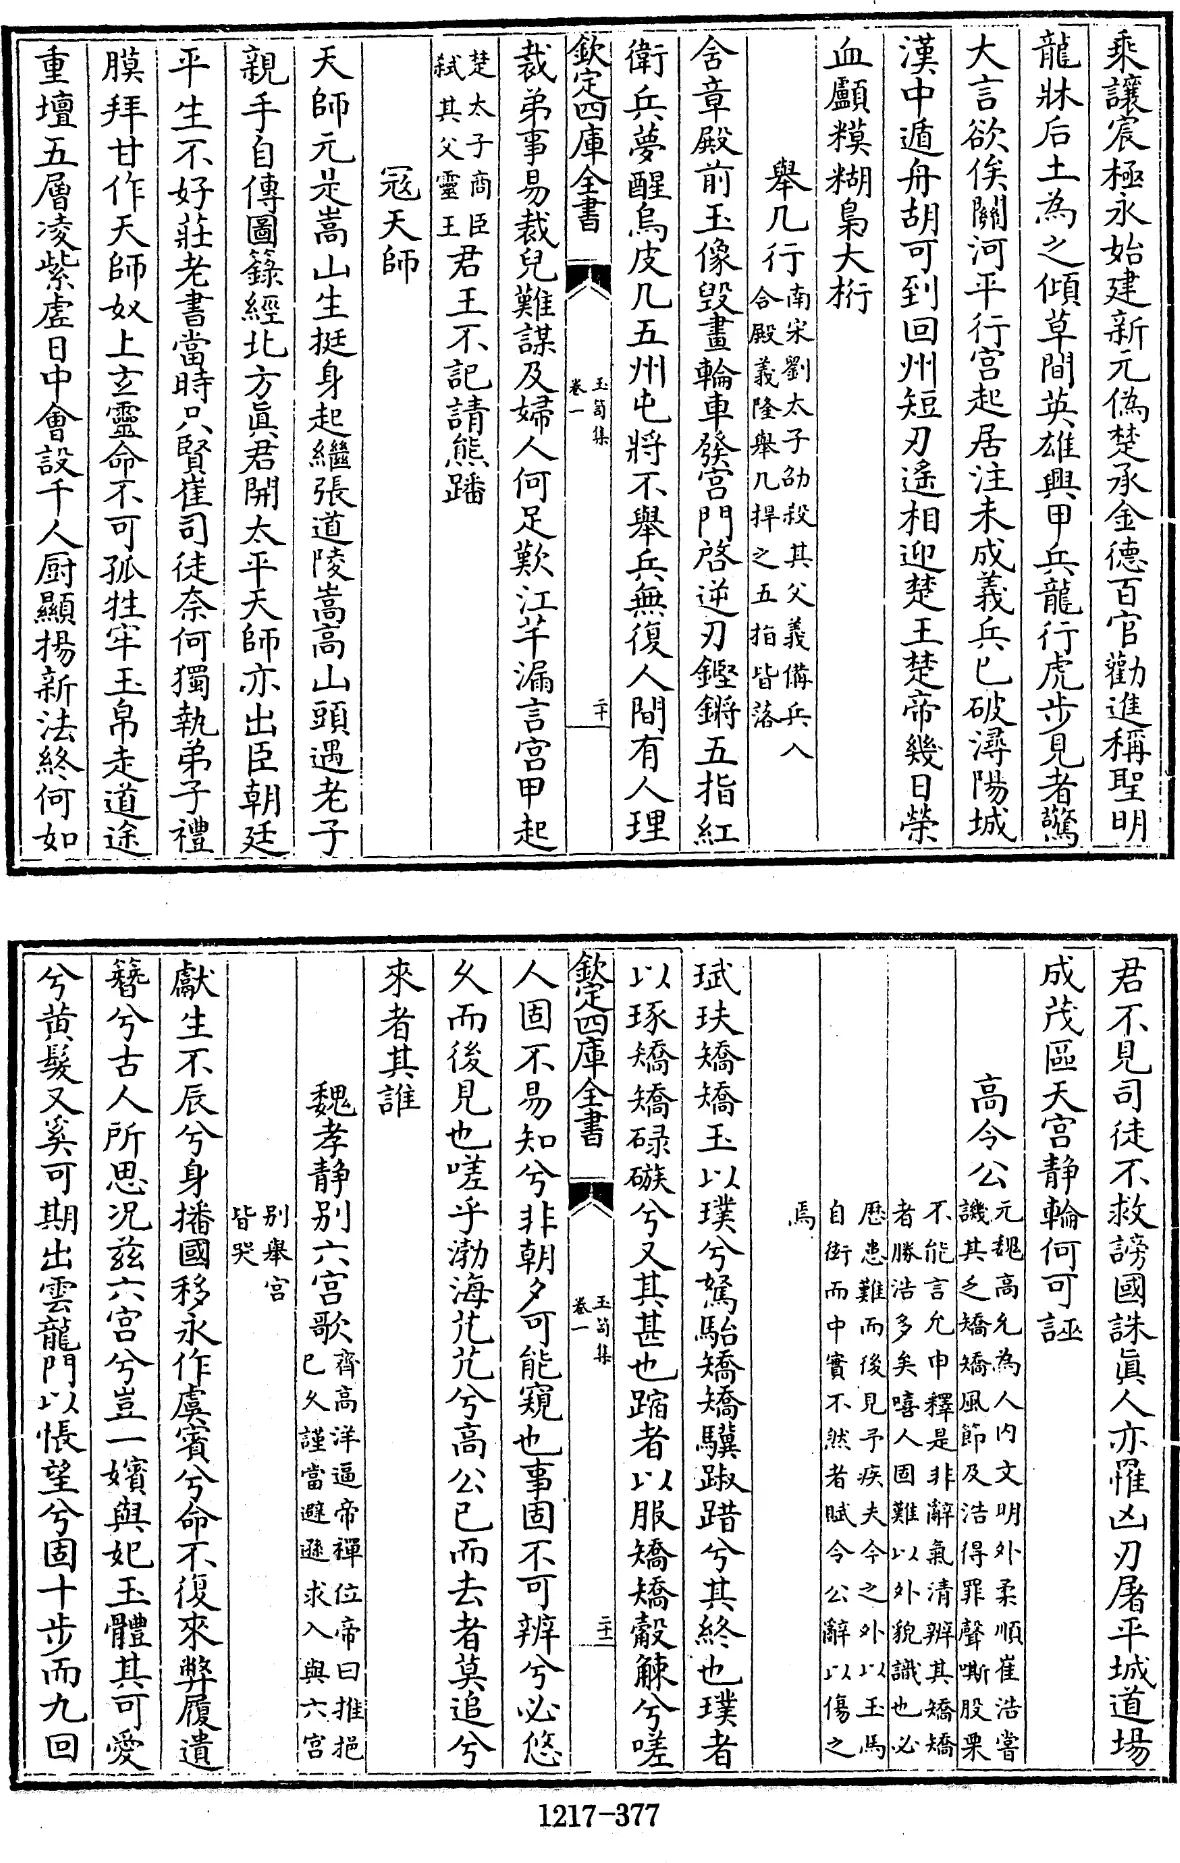 乘讓宸極永始建新元偽楚承金德百官勸進稱聖明
龍牀后土為之傾草間英雄興甲兵龍行虎步見者驚
大言欲俟關河平行宫起居注未成義兵已破潯陽城
漢中遁舟胡可到回州短刃遙相迎楚王楚帝幾日榮
血顱糢糊梟大桁
舉几行南宋劉太子劭殺其父義備兵入
合殿義隆舉几捍之五指皆落
含章殿前玉像毁畫輪車發宫門啓逆刃鏗鏘五指紅
衛兵夢醒烏皮几五州屯將不舉兵無復人間有人理
欽定四庫全書
玉笥集
卷一
二十
裁弟事易裁兒難謀及婦人何足歎江芊漏言宫甲起
楚太子商臣
弑其父靈王君王不記請熊蹯
冦天師
天師元是嵩山生挺身起繼張道陵嵩高山頭遇老子
親手自傳圖籙經北方眞君開太平天師亦出臣朝廷
平生不好莊老書當時只賢崔司徒奈何獨執弟子禮
膜拜甘作天師奴上玄靈命不可孤牲牢玉帛走道途
重壇五層凌紫虛日中會設千人厨顯揚新法終何如
君不見司徒不救謗國誅眞人亦罹凶刃屠平城道場
成茂區天宫静輪何可誣
高令公元魏高允為人内文明外柔順崔浩嘗
譏其乏矯矯風節及浩得罪聲嘶股栗
不能言允申釋是非辭氣清辨其矯矯
者勝浩多矣嘻人固難以外貌識也必
歴患難而後見予疾夫今之外以玉馬
自衒而中實不然者賦令公辭以傷之
焉
珷玞矯矯玉以璞兮駑駘矯矯驥踧踖兮其終也璞者
以琢矯矯碌磼兮又其甚也蹜者以服矯矯觳觫兮嗟
欽定四庫全書
玉笥集
卷一
二十一
人固不易知兮非朝夕可能窺也事固不可辨兮必悠
久而後見也嗟乎渤海芒芒兮高公已而去者莫追兮
來者其誰
魏孝静别六宫歌齊高洋逼帝禪位帝曰推挹
已久謹當避遜求入與六宫
别舉宫
皆哭
獻生不辰兮身播國移永作虞賓兮命不復來弊履遺
簪兮古人所思况兹六宫兮豈一嬪與妃玉體其可愛
兮黄髮又奚可期出雲龍門以悵望兮固十步而九回
1217-377